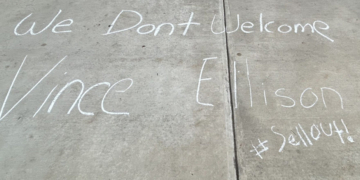 We Dont Welcome
Vince Ellison
#Sellout!